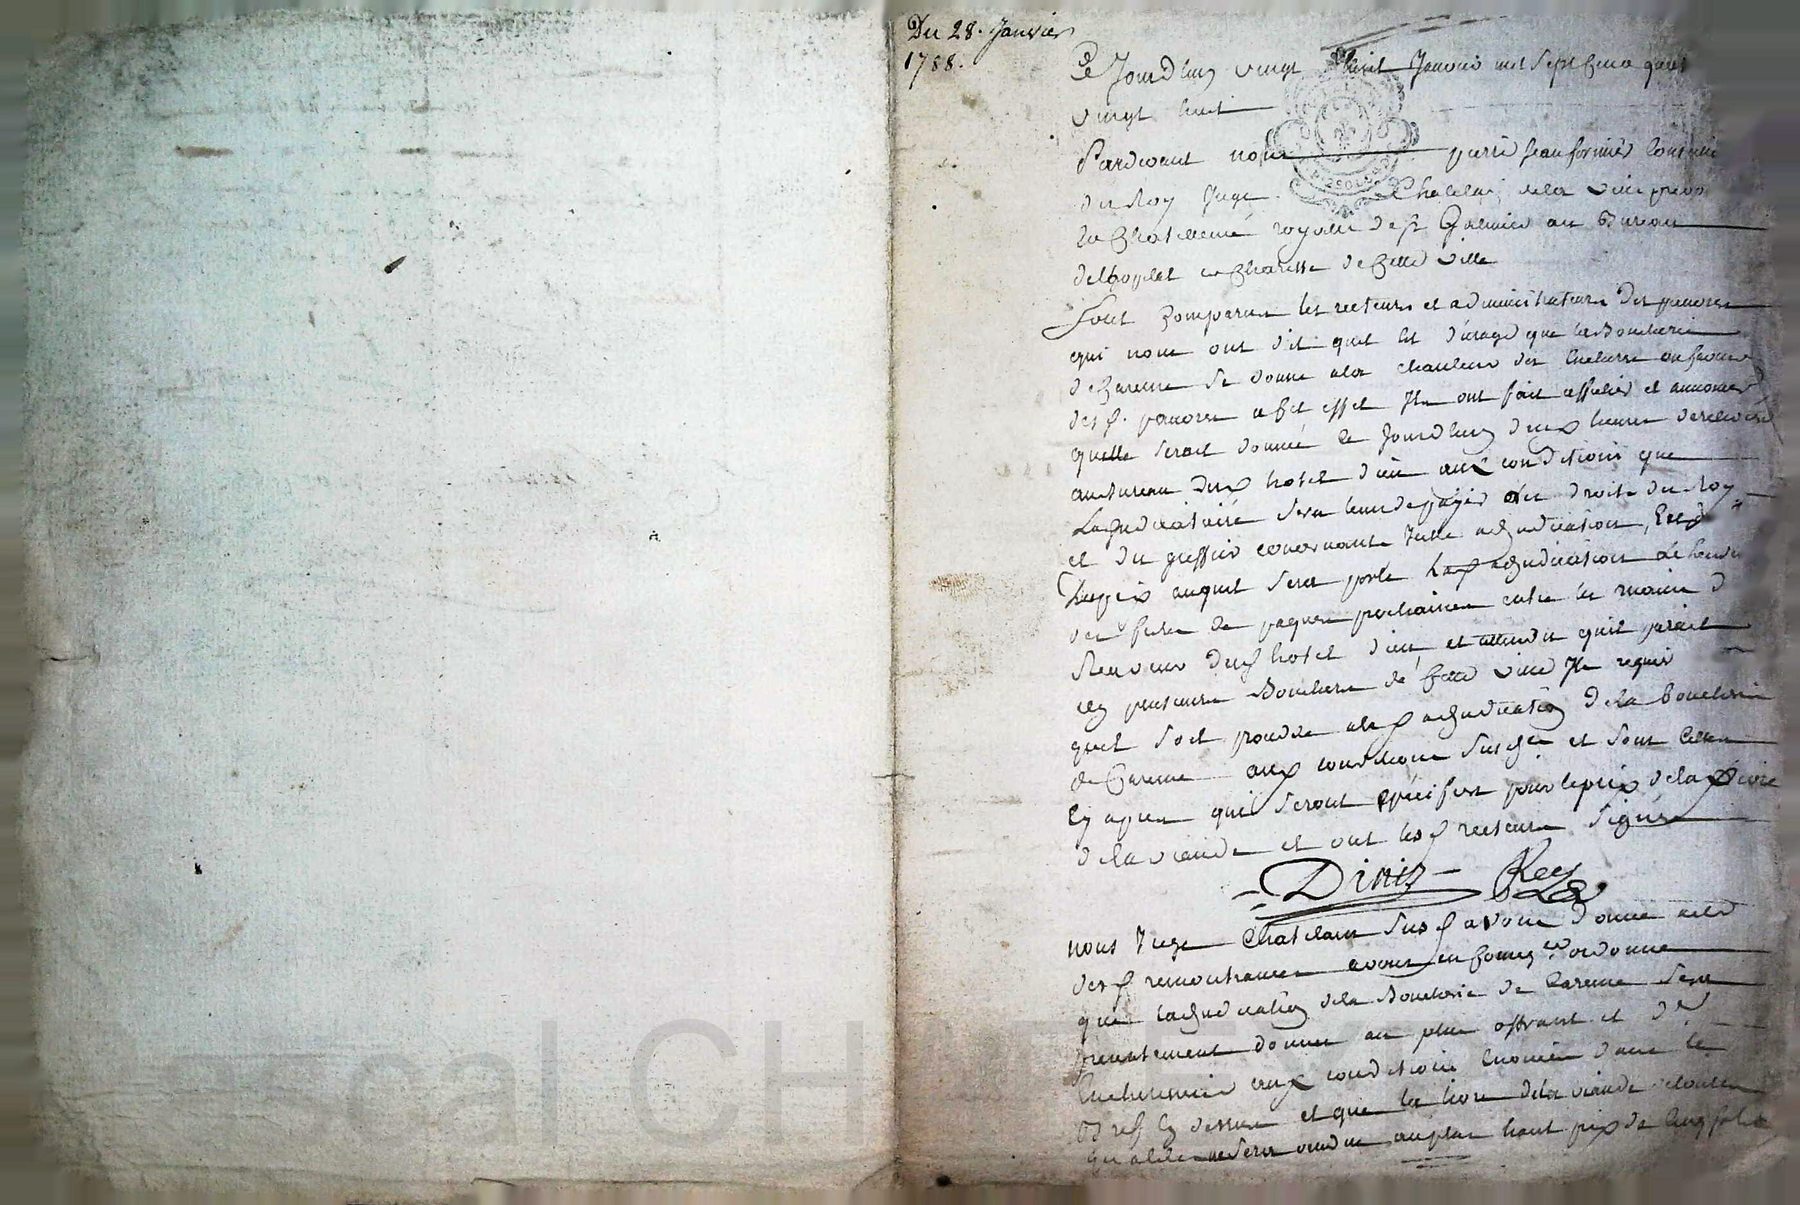 Du 28. Janvier
1788.
Ce Jourdhuy vingt huit Janvier mil sept cens quatre
vingt huit
Pardevant nous pierre jean fornier Conseiller
du Roy Juge Chatelain de la ville
la Chatellenie royalle de st Galmier au Bureau
delhopital et Charitté de Cette ville
Sont Comparus les recteurs et administrateurs des pauvres
qui nous ont dit quil est d'usage que la Boucherie
de Careme se donne a la chaleur des Encheres en faveur
des d. pauvres a Cet effet Ils ont fait afficher et annoncer
quelle seroit donnée Ce Jourdhuy deux heures de relevée
au Bureau dud hotel dieu aux conditions que
Ladjudicataire sera tenu de payer les droits du Roy
et du greffier concernants l'adjudication, Et le
prix auquel sera porté lad adjudication
des fetes de paques prochaines entre les mains d
Receveur dud hotel dieu et attendu quil paroit
icy plusieurs Bouchers de Cette ville Ils requis
quil soit procedé a lad adjudication de la boucherie
de Careme aux conditions susd et sous Celles
Cy apres qui seront specifiées pour le prix de la livre
de la viande et ont lesd recteurs signés
Dinis Rey
nous Juge Chatelain susd avons donné acte
desd remontrances avons en Consq.ce ordonné
que ladjudication de la Boucherie de Careme sera
presentement donnée au plus offrant et d.er
Encherisseur aux conditions Enoncées dans le
Cy dessus et que la livre de la viande de toutes
qualités ne sera vendue au plus haut prix de Cinq sols